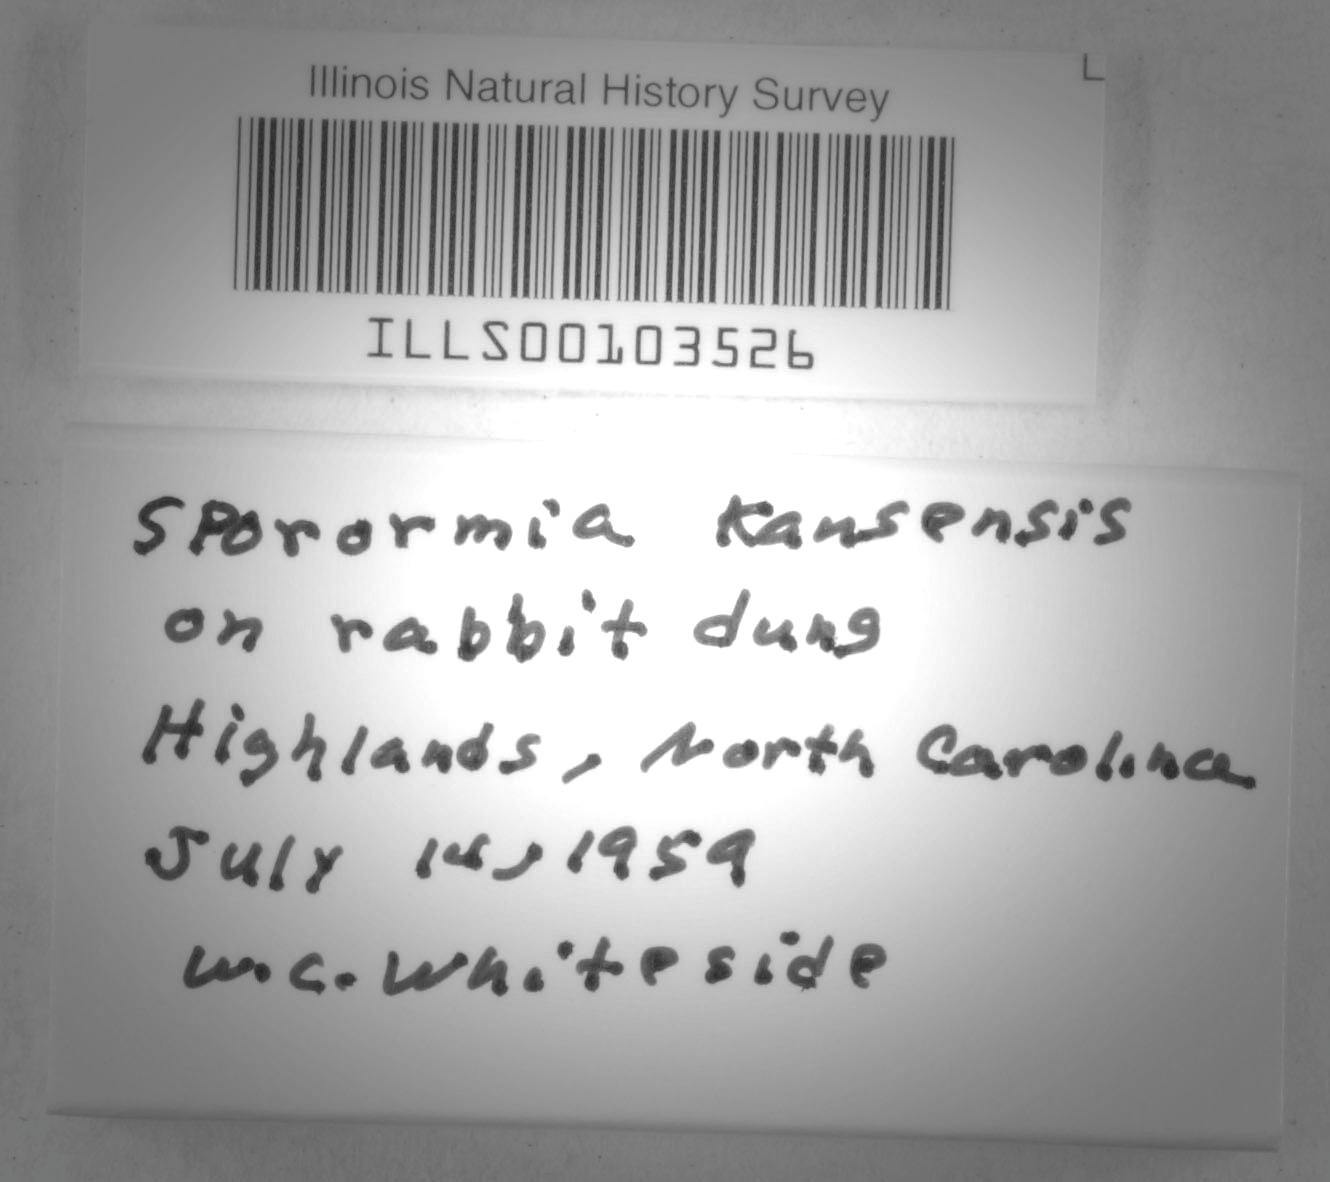 Illinois Natural History Survey
L
ILLS00103526
Sporormia kansensis
on rabbit dung
Highlands, North Carolina
July 14, 1959
W.C. Whiteside